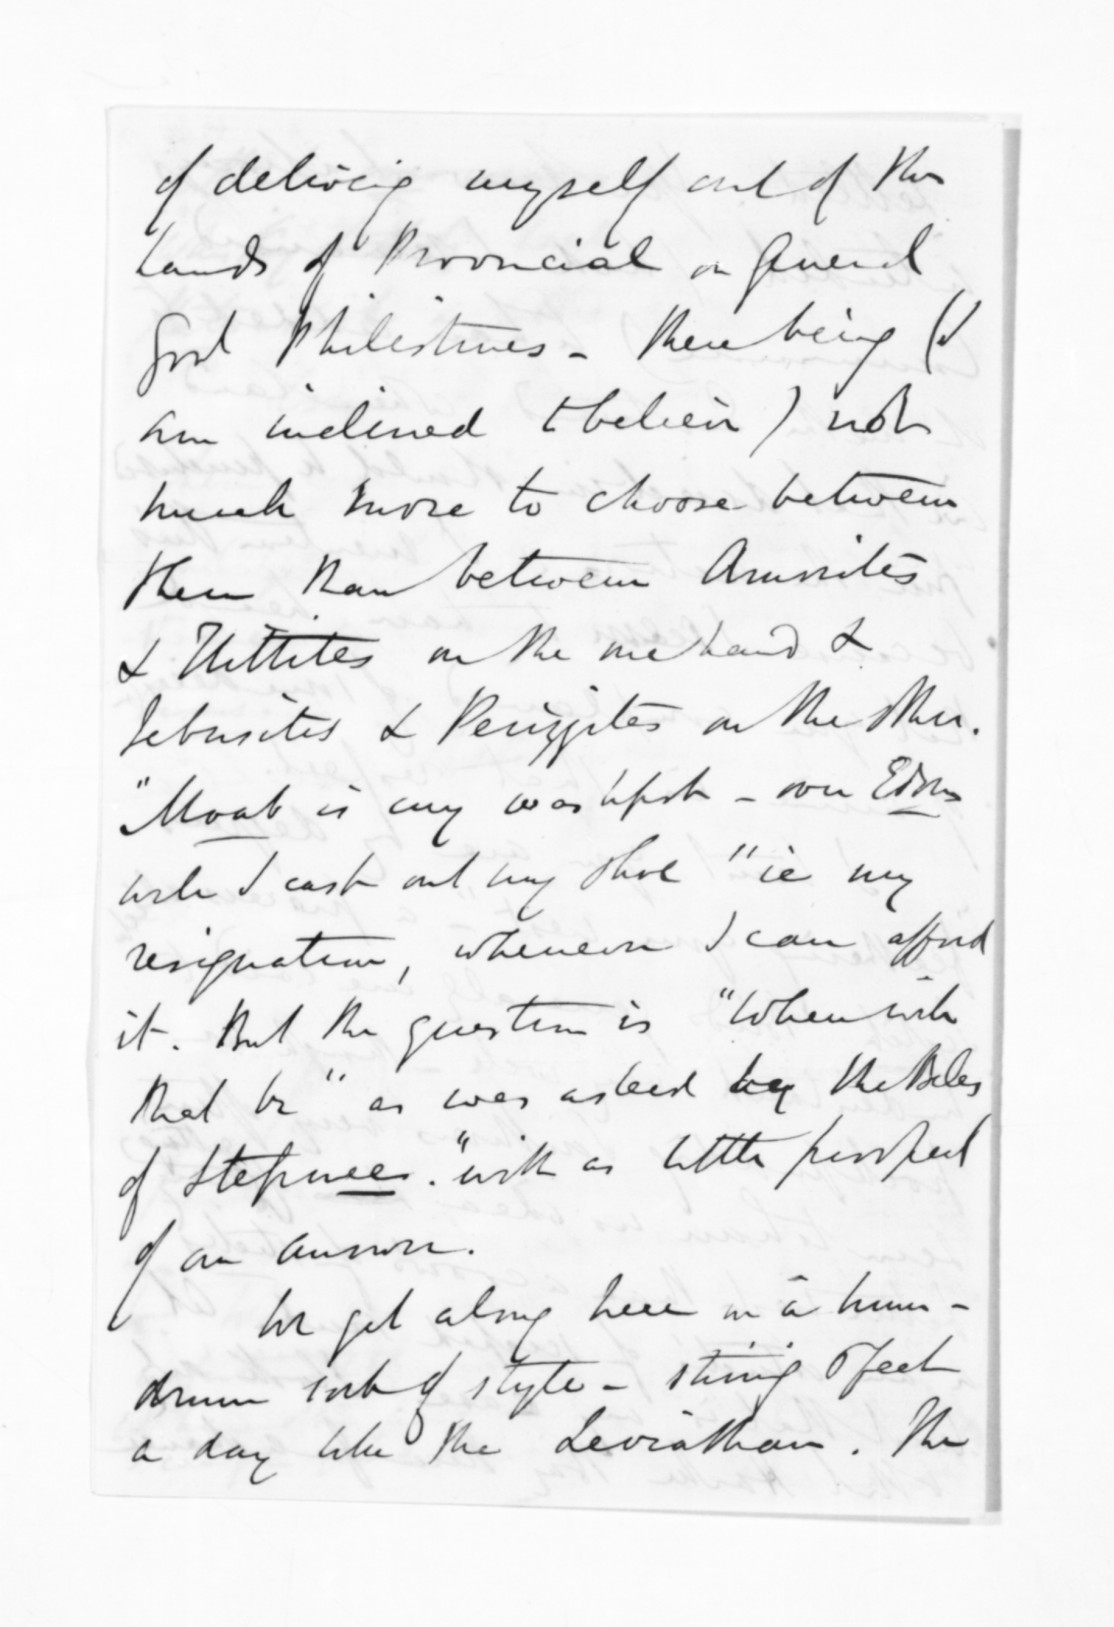 of delivering myself out of the
hands of Provincial or General
Govt Philistines - there being (I
am inclined to believe) not
much more to choose between
them than between Amorites
& Hittites on the one hand &
Jebusites & Perizzites on the other.
"Moab is my washpot - over Edom
will I cast out my shoe" ie my
resignation, whenever I can afford
it. But the question is "When will
that be" as was asked by the Bells
of Stepnee." with as little prospect
of an answer.
We get along here in a hum-
drum sort of style - stirring 6 feet
a day like the Leviathan. The